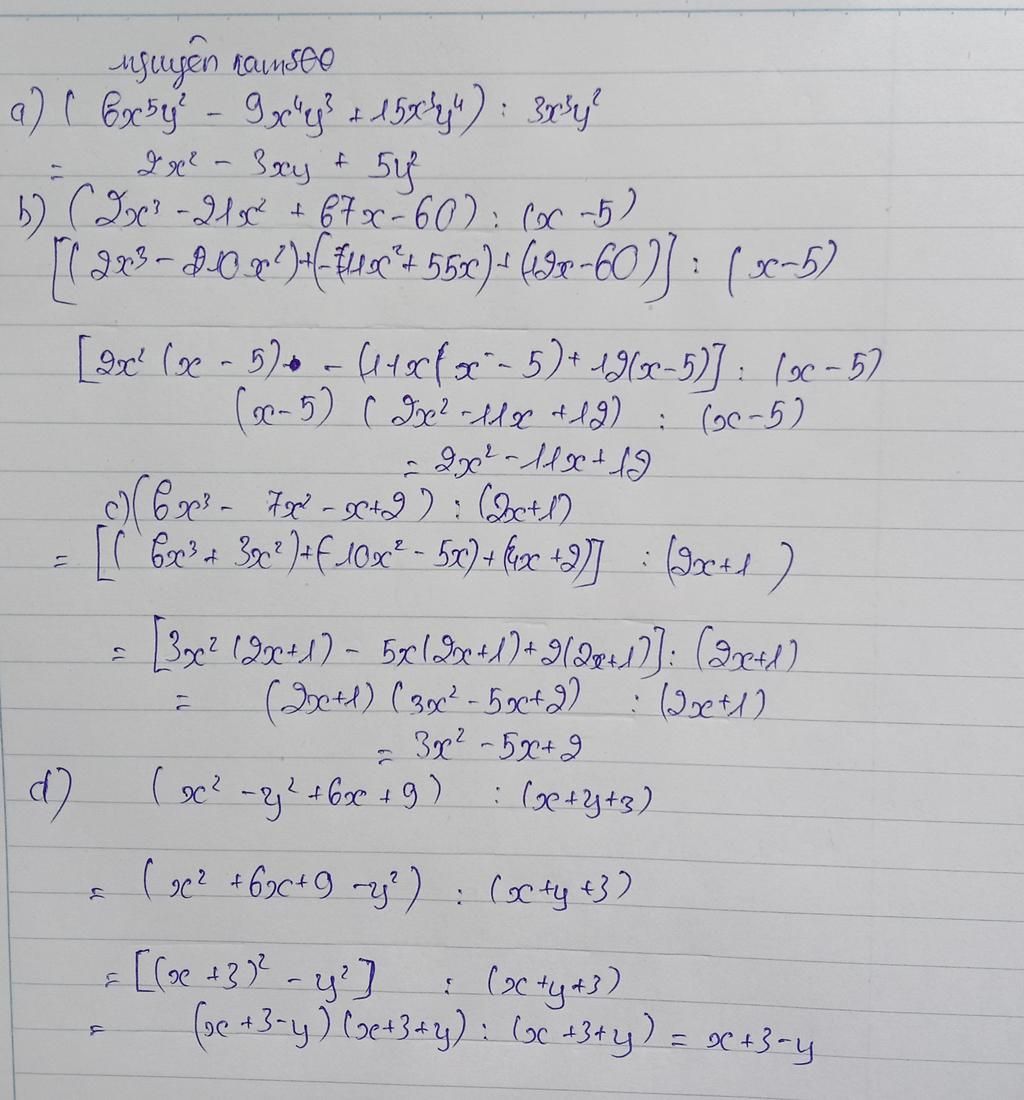 nguyên nam500
a) ( 6x⁵y² - 9x⁴y³ + 15x³y⁴) : 3x³y²
= 2x² - 3xy + 5y²
b) (2x³ - 21x² + 67x - 60) : (x - 5)
[(2x³ - 10x²) + (-11x² + 55x) + (12x - 60)] : (x - 5)
[2x² (x - 5) - (11x(x - 5) + 12(x - 5)] : (x - 5)
(x - 5) (2x² - 11x + 12) : (x - 5)
= 2x² - 11x + 12
c) (6x³ - 7x² - x + 2) : (2x + 1)
= [( 6x³ + 3x²) + (-10x² - 5x) + (4x + 2)] : (2x + 1)
= [3x² (2x + 1) - 5x(2x + 1) + 2(2x + 1)] : (2x + 1)
= (2x + 1) (3x² - 5x + 2) : (2x + 1)
= 3x² - 5x + 2
d) (x² - y² + 6x + 9) : (x + y + 3)
= (x² + 6x + 9 - y²) : (x + y + 3)
= [(x + 3)² - y²] : (x + y + 3)
= (x + 3 - y) (x + 3 + y) : (x + 3 + y) = x + 3 - y